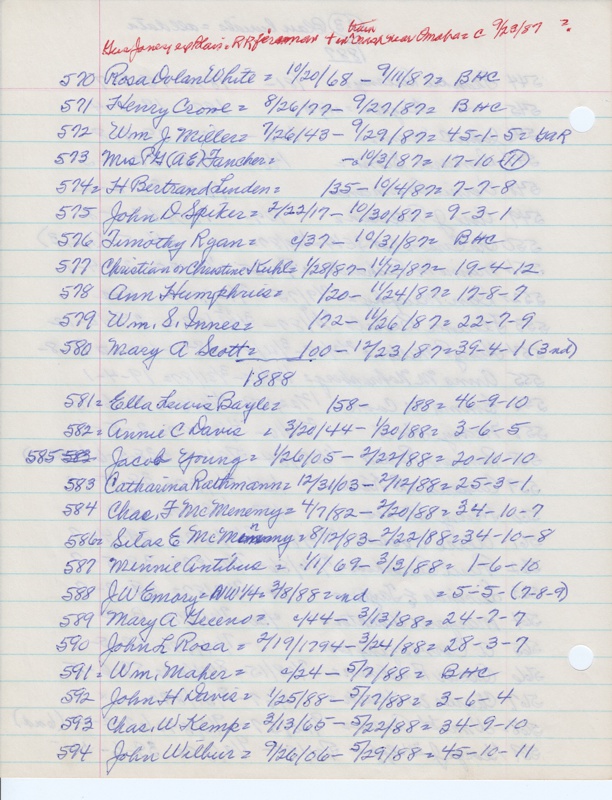 train
Gus Jones explain = RR fireman + in   near Omaha = C 9/23/87 ?
570 Rosa Dolan White = 10/20/68 - 9/11/87 = BHC
571 Henry Crome = 8/26/77 - 9/27/87 = BHC
572 Wm J Miller = 7/26/43 - 9/29/87 = 45-1-5 = GAR
573 Mrs P H (A E) Fancher = - 10/3/87 = 17-10-(11)
574 = H Bertrand Linden = /35 - 10/4/87 = 7-7-8
575 John D Spiker = 2/22/17 - 10/30/87 = 9-3-7
576 Timothy Ryan = c/37 - 10/31/87 = BHC
577 Christian or Christine Kuhl = 1/28/87 - 11/12/87 = 19-4-12
578 Ann Humphries = /20 - 11/24/87 = 17-8-7
579 Wm. S. Innes = /72 - 11/26/87 = 22-7-9
580 Mary A Scott = /00 - 12/23/87 = 39-4-1 (3 nd)
1888
581 = Ella Lewis Bayle = /58 - /88 = 46-9-10
582 = Annie C Davis = 3/20/44 - 1/30/88 = 3-6-5
585 583 Jacob Young = 1/26/05 - 2/22/88 = 20-10-10
583 Catharina Rathmann = 12/31/03 - 2/12/88 = 25-3-1
584 Chas. F McMenemy = 4/7/82 - 2/20/88 = 34-10-7
586 = Silas E McMenemy = 8/12/83 - 2/22/88 = 34-10-8
587 Minnie Antibus = 1/11/69 - 3/3/88 = 1-6-10
588 J W Emory = NW 1/4 = 3/8/88 = nd = 5-5- (7-8-9)
589 Mary A Greeno = c/44 - 3/13/88 = 24-7-7
590 John L Rosa = 2/19/1794 - 3/24/88 = 28-3-7
591 = Wm. Maher = c/24 - 5/7/88 = BHC
592 John H Davis = 1/25/88 - 5/17/88 = 3-6-4
593 Chas. W Kemp = 3/13/65 - 5/22/88 = 34-9-10
594 John Wilbur = 9/26/06 - 5/29/88 = 45-10-11